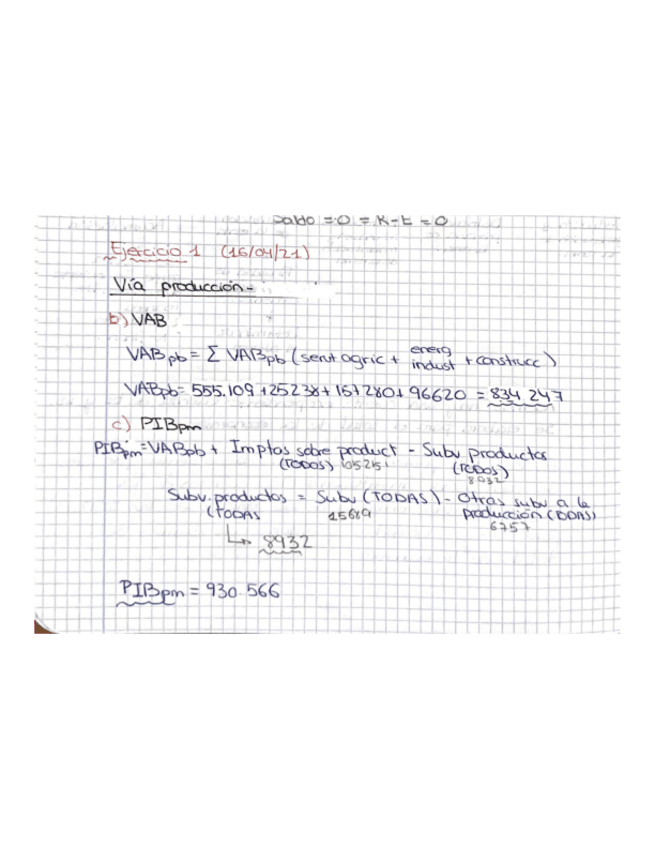 Saldo = 0 = K - E = 0
Ejercicio 1 (16/04/21)
Vía producción-
b) VAB
VABpb = Σ VABpb (serv+agric + energ indust + construcc)
VABpb = 555.109 + 25238 + 157280 + 96620 = 834.247
c) PIBpm
PIBpm = VABpb + Imptos sobre product - Subv productos
(TODOS) 105251 (TODOS)
8932
Subv. productos = Subv (TODAS) - Otras subv a la
(TODAS 15689 producción (TODAS)
6757
↳ 8932
PIBpm = 930.566